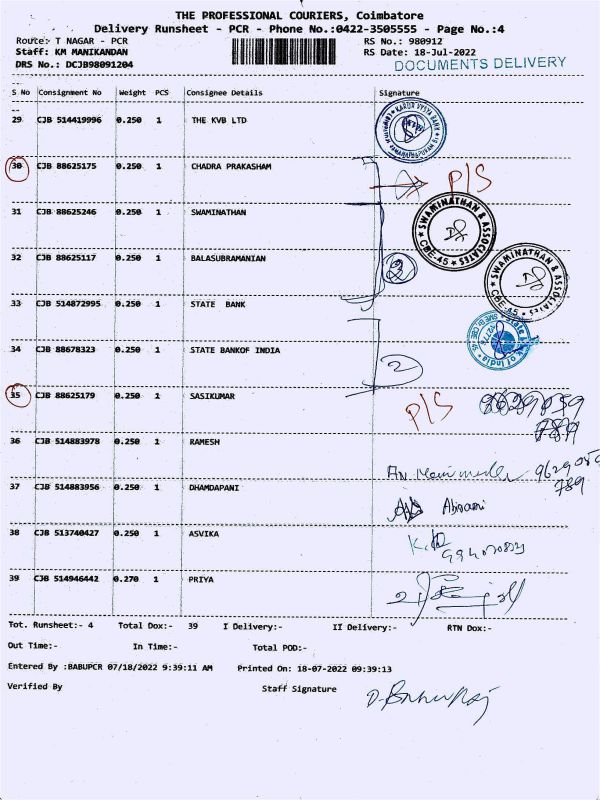 THE PROFESSIONAL COURIERS, Coimbatore
Delivery Runsheet - PCR - Phone No.:0422-3505555 - Page No.:4
Route:- T NAGAR - PCR RS No.: 980912
Staff: KM MANIKANDAN RS Date: 18-Jul-2022
DRS No.: DCJB98091204 DOCUMENTS DELIVERY
S No Consignment No Weight PCS Consignee Details Signature
29 CJB 514419996 0.250 1 THE KVB LTD
KARUR VYSYA BANK
30 CJB 88625175 0.250 1 CHADRA PRAKASHAM
P/S
31 CJB 88625246 0.250 1 SWAMINATHAN
SWAMINATHAN & ASSOCIATES
CBE-45
32 CJB 88625117 0.250 1 BALASUBRAMANIAN
SWAMINATHAN & ASSOCIATES
CBE-45
33 CJB 514872995 0.250 1 STATE BANK
State Bank of India
34 CJB 88678323 0.250 1 STATE BANKOF INDIA
2
35 CJB 88625179 0.250 1 SASIKUMAR
P/S
36 CJB 514883978 0.250 1 RAMESH
789
37 CJB 514883956 0.250 1 DHAMDAPANI
Abirami
38 CJB 513740427 0.250 1 ASVIKA
39 CJB 514946442 0.270 1 PRIYA
Tot. Runsheet:- 4 Total Dox:- 39 I Delivery:- II Delivery:- RTN Dox:-
Out Time:- In Time:- Total POD:-
Entered By :BABUPCR 07/18/2022 9:39:11 AM Printed On: 18-07-2022 09:39:13
Verified By Staff Signature